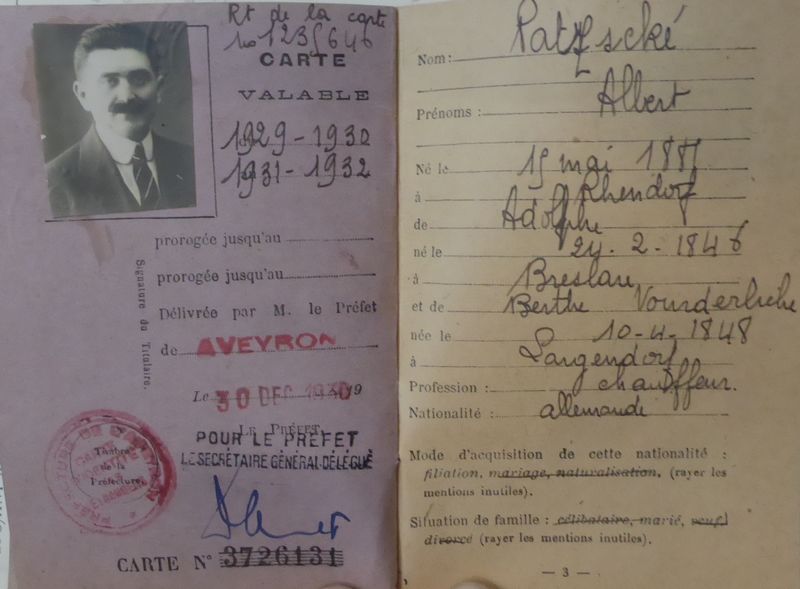 Rt de la carte
no 1235646
CARTE
VALABLE
1929-1930
1931-1932
prorogée jusqu'au
prorogée jusqu'au
Délivrée par M. le Préfet
de AVEYRON
Le 30 DEC 1930 19
LE PRÉFET
POUR LE PREFET
LE SECRÉTAIRE GÉNÉRAL DÉLÉGUÉ
Signature du Titulaire.
Timbre
de la
Préfecture
CARTE N° 3726131
Nom: Patzscké
Prénoms: Albert
Né le 15 mai 1887
à Rhendorf
de Adolphe
né le 24-2-1846
à Breslau
et de Berthe
née le 10-4-1848
à Largendorf
Profession: chauffeur.
Nationalité: allemande
Mode d'acquisition de cette nationalité :
filiation, mariage, naturalisation, (rayer les
mentions inutiles).
Situation de famille : célibataire, marié, veuf,
divorcé (rayer les mentions inutiles).
— 3 —